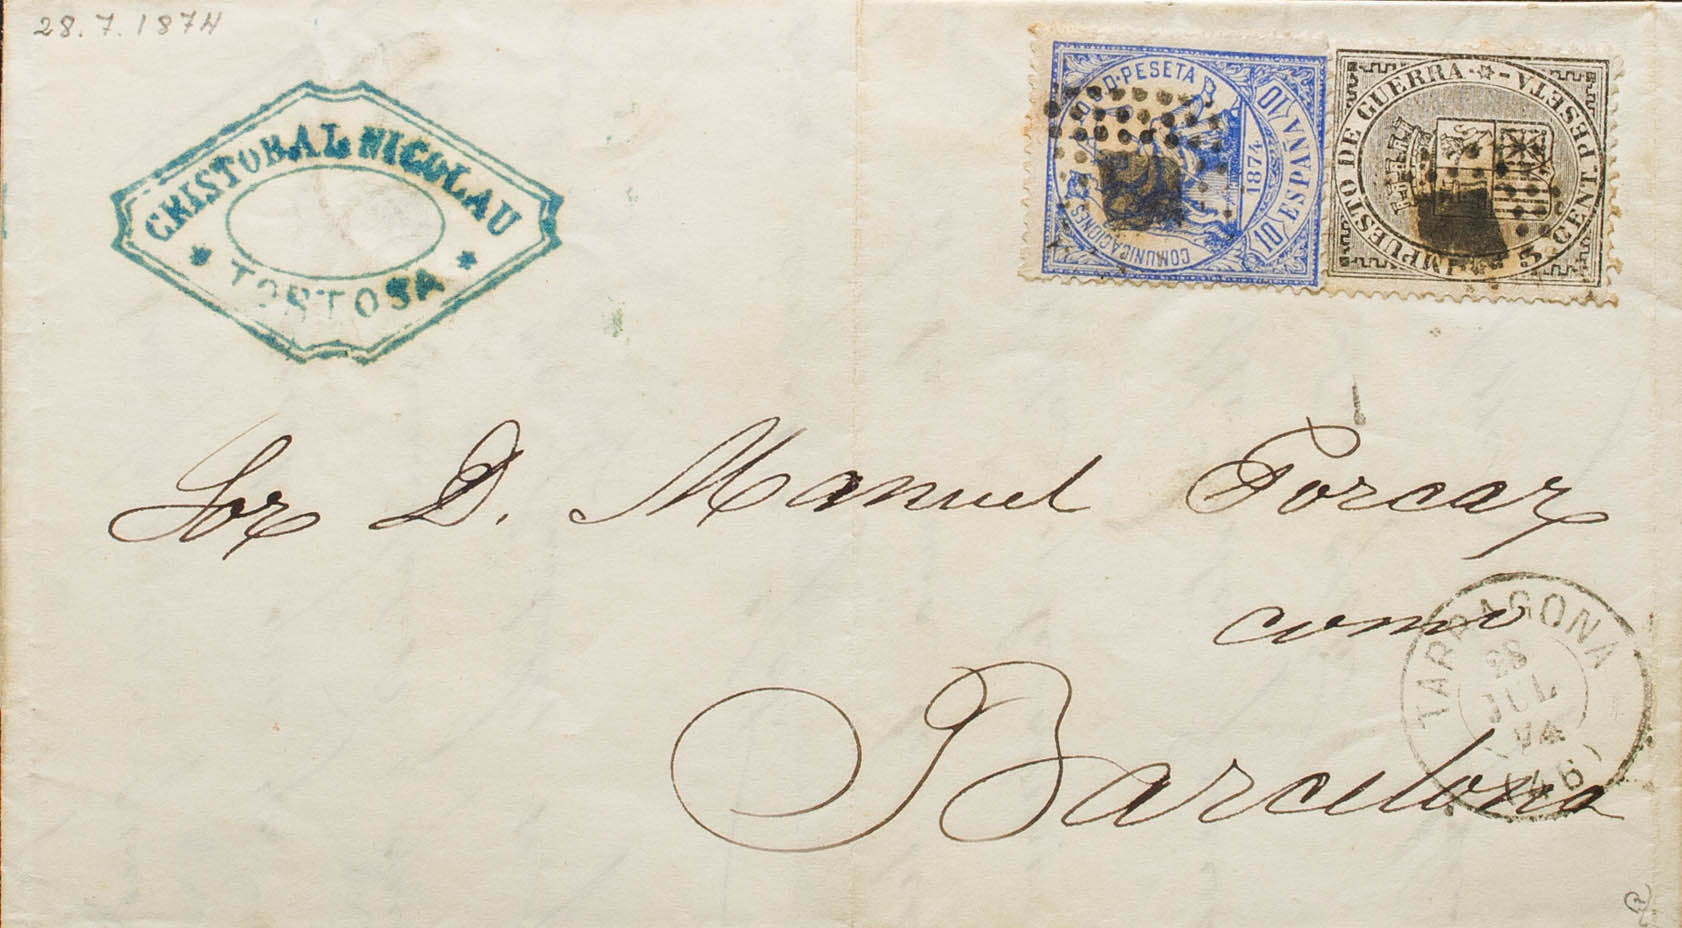 28.7.1874
CRISTOBAL NICOLAU
* TORTOSA *
COMUNICACIONES 10 CS D PESETA
10 ESPAÑA 10
1874
IMPUESTO DE GUERRA
5 CENT. PESETA
Sor D. Manuel Porcar
como
Barcelona
TARRAGONA
28
JUL
74
(46)